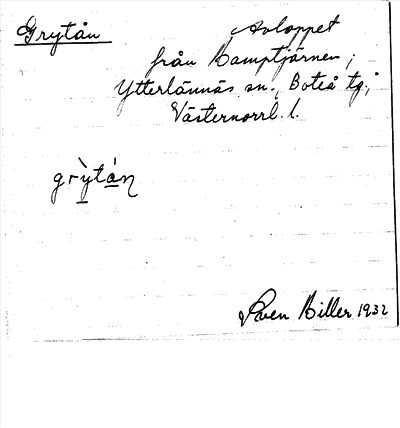 Grytån Avloppet
från Kamptjärnen;
Ytterlännäs sn., Boteå tg.;
Västernorrl. l.
grỳtán
Sven Biller 1932